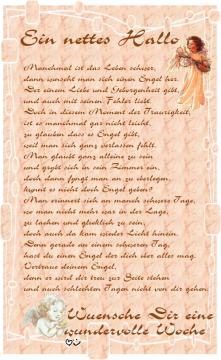 Ein nettes Hallo
Manchmal ist das Leben schwer,
dann wünscht man sich einen Engel her.
Der einem Liebe und Geborgenheit gibt,
und auch mit seinen Fehler liebt.
Doch in diesem Moment der Traurigkeit,
ist es manchmal gar nicht leicht,
zu glauben dass es Engel gibt,
weil man sich ganz verlassen fühlt.
Man glaubt ganz alleine zu sein
und gräbt sich in sein Zimmer ein,
doch dann fängt man an zu überlegen,
kann es nicht doch Engel geben?
Man erinnert sich an manch schwere Tage,
wo man nicht mehr war in der Lage,
zu lachen und glücklich zu sein,
doch auch da kam wieder Licht hinein.
Denn gerade an einem schweren Tag,
hast du einen Engel der dich über alles mag.
Vertraue deinem Engel,
denn er wird dir treu zur Seite stehen
und auch schlechten Tagen nicht von dir gehen.
Wuensche Dir eine
wundervolle Woche